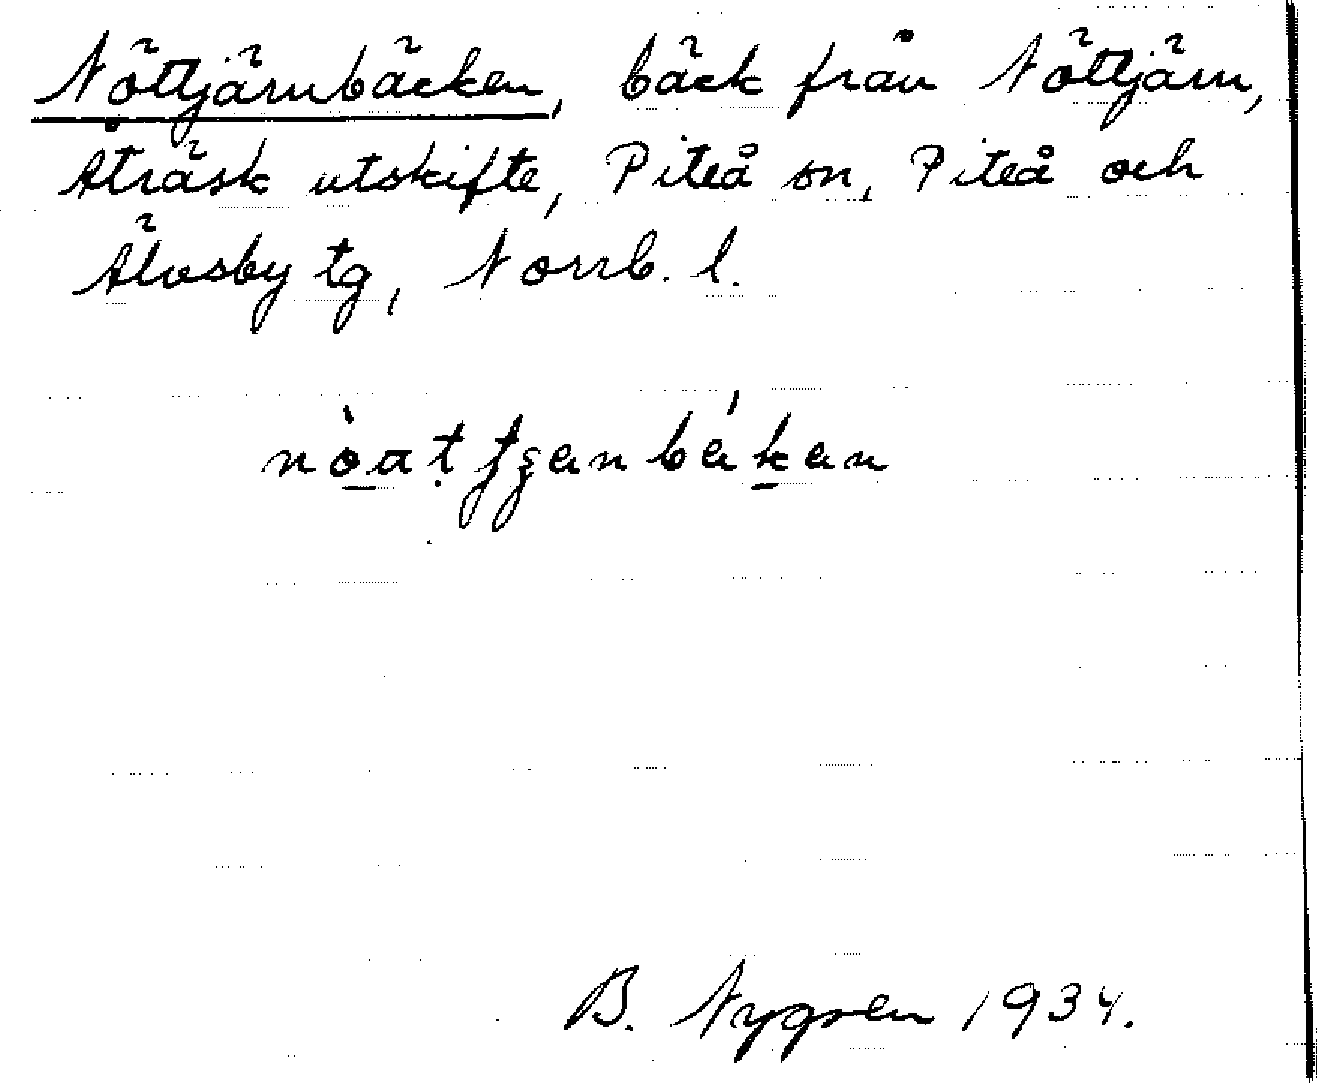 Nöttjärnbäcken, bäck från Nöttjärn,
Åträsk utskifte, Piteå sn, Piteå och
Älvsby tg, Norrb. l.
B. Nygren 1934.